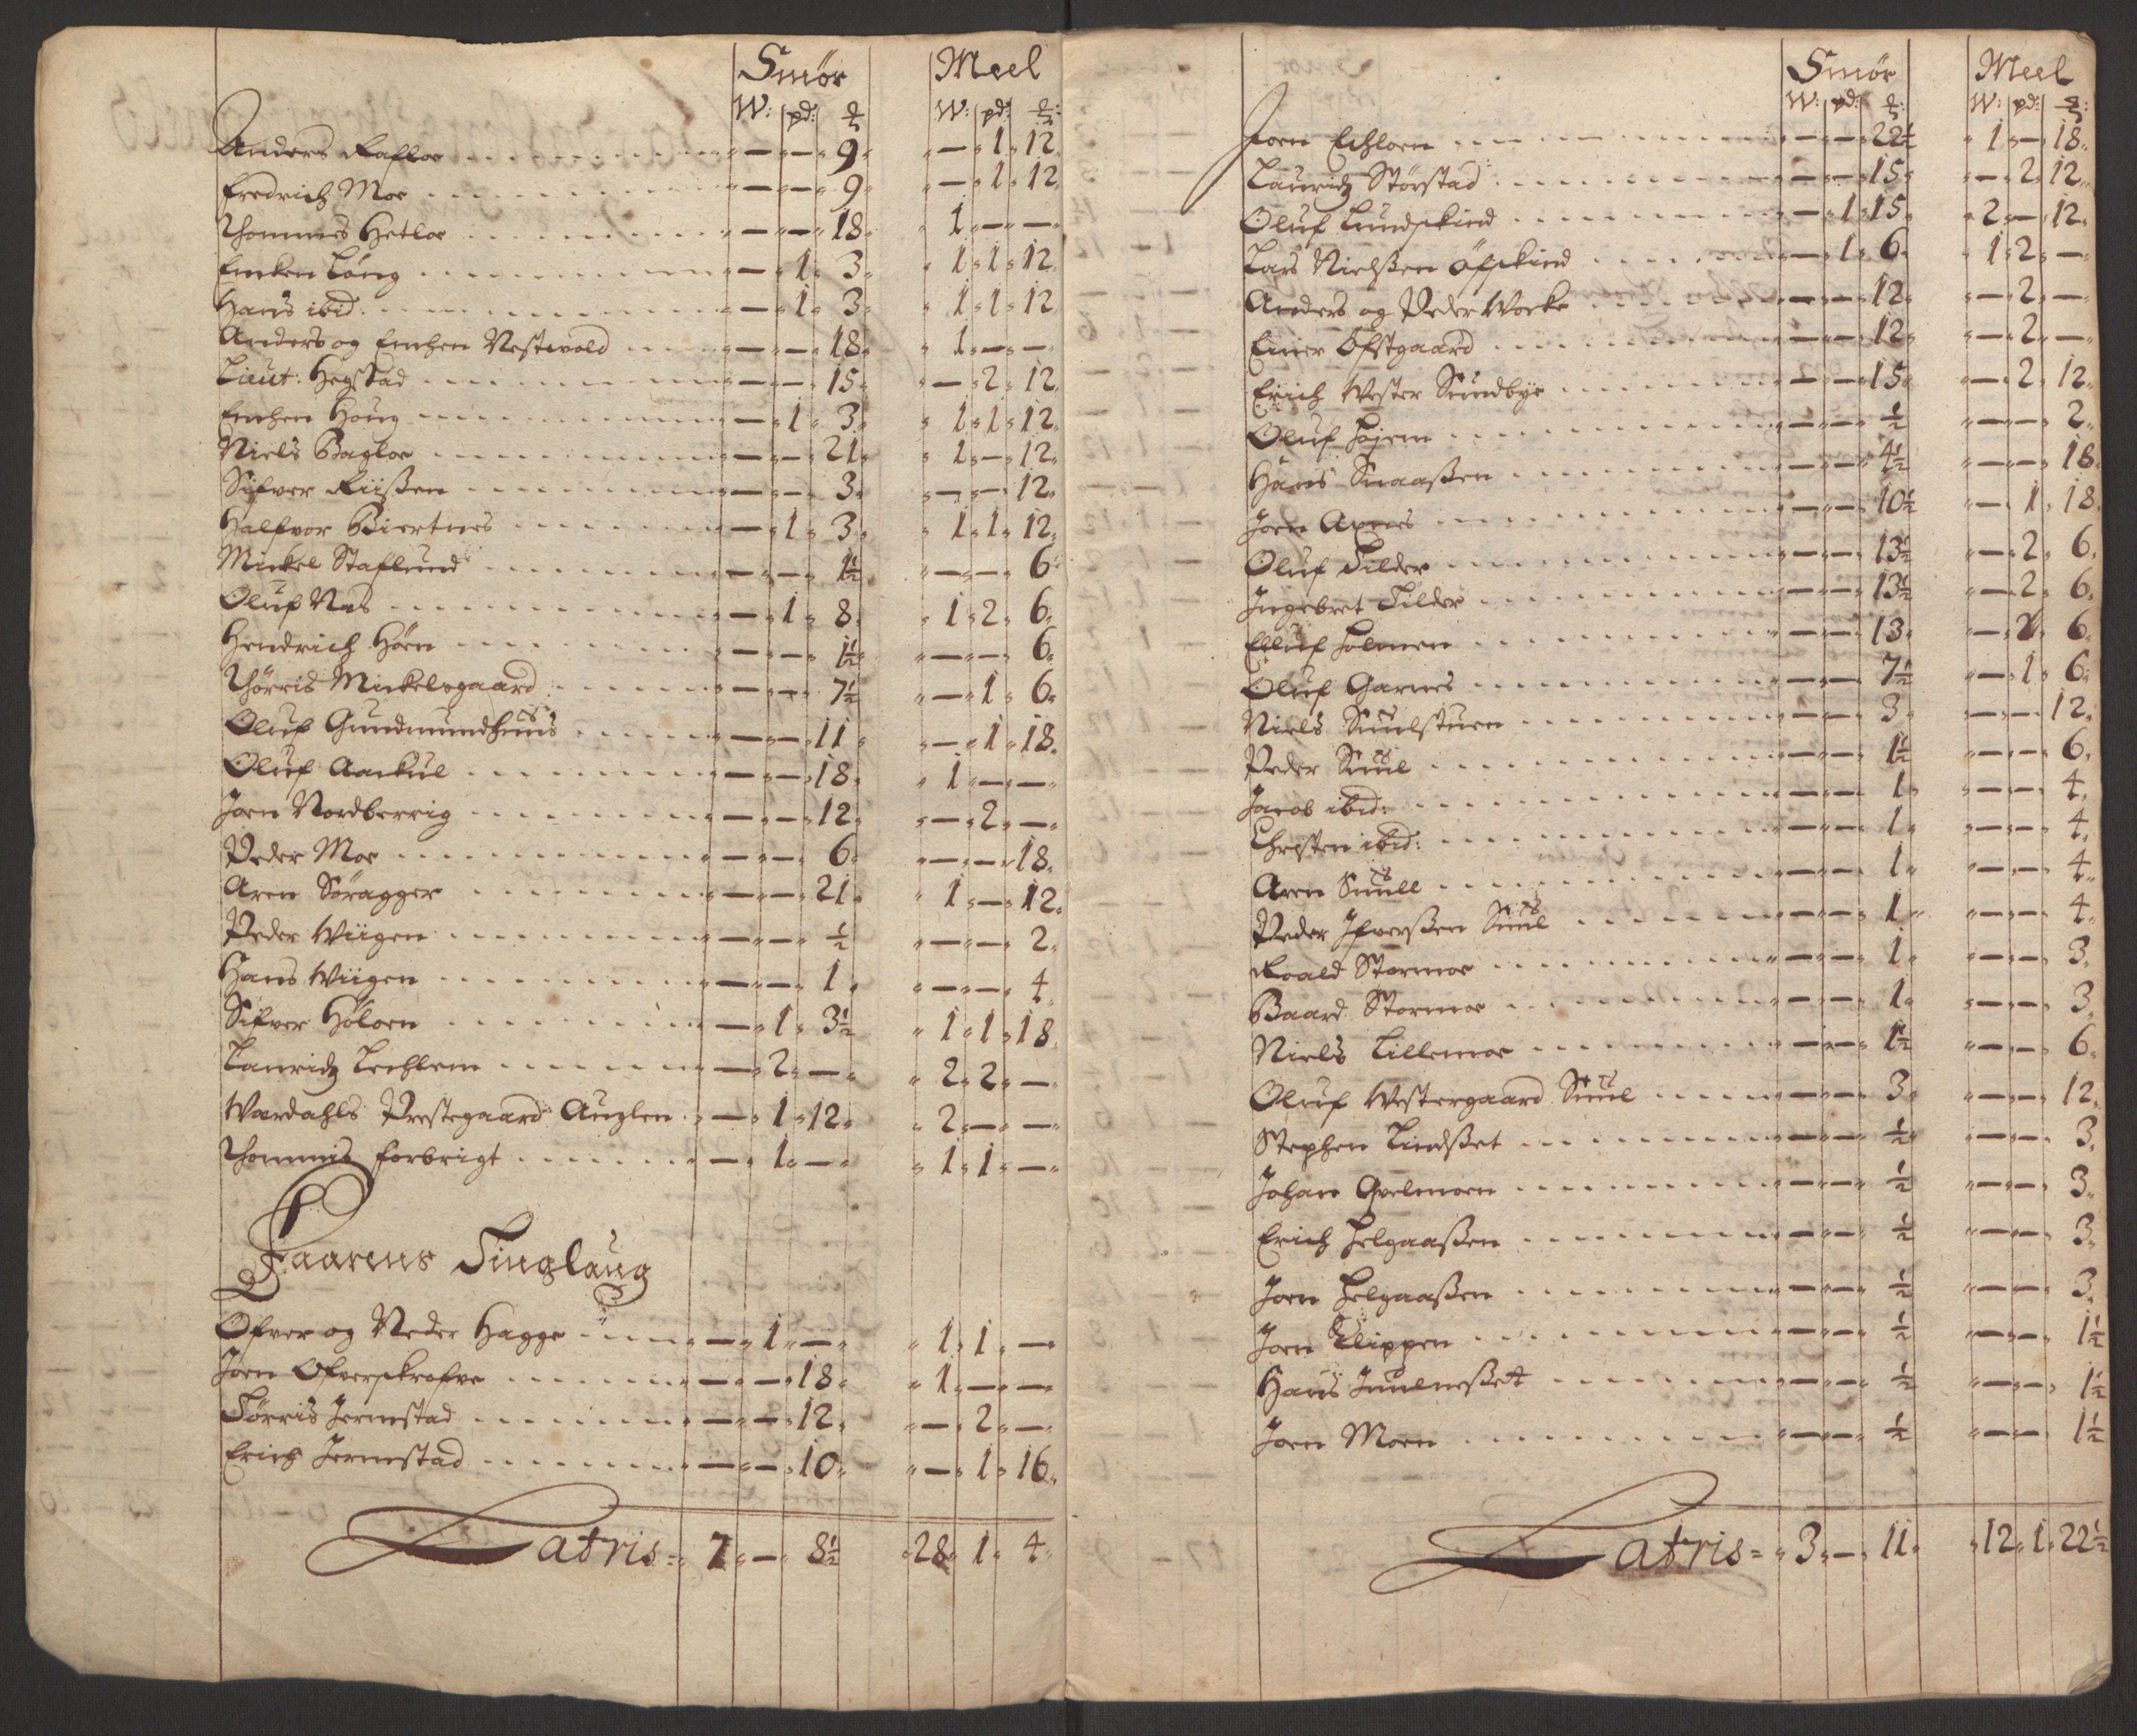 Smör Meel
W: pd: ℔ W: pd: ℔:
Anders Rafloe — — 9 — 1 12
Fredrich Moe — — 9 — 1 12
Thommes Hetloe — — 18 1 — —
Emken Lóng — 1 3 1 1 12
Hans ibid: — 1 3 1 1 12
Anders og Emhen Nestevold — — 18 1 — —
Lieut: Hegstad — — 15 — 2 12
Emhen Houg — 1 3 1 1 12
Niels Bagloe — — 21 1 — 12
Sifver Riißen — — 3 — — 12
Halfvor Biertnes — 1 3 1 1 12
Mickel Staflund — — 1½ — — 6
Oluf Nes — 1 8 1 2 6
Hendrich Hoen — — 1½ — — 6
Thörris Mickelsgaard — — 7½ — 1 6
Oluf Gundmundhuus — — 11 — 1 18
Oluf Aackul — — 18 1 — —
Joen Nordberrig — — 12 — 2 —
Peder Moe — — 6 — — 18
Aren Söragger — — 21 1 — 12
Peder Wiigen — — ½ — — 2
Hans Wiigen — — 1 — — 4
Sifver Hòloen — 1 3½ 1 1 18
Lauridz Lechlem — 2 — 2 2 —
Wardahls Prestegaard Auglen — 1 12 2 — —
Thommis Forbrigt — 1 — 1 1 —
Faarens Tinglaug
Ofver og Neder Hagge — 1 — 1 1 —
Joen Ofverskrofve — — 18 1 — —
Törris Jermstad — — 12 — 2 —
Erich Jermstad — — 10 — 1 16
Latris 7 — 8½ 28 1 4
Smör Meel
W: pd: ℔: W: pd: ℔:
Joen Echloen — — 22½ 1 — 18
Lauridz Störstad — — 15 — 2 12
Oluf Lundskind — 1 15 2 — 12
Lars Nielßen Öfskind — 1 6 1 2 —
Anders og Peder Wocke — — 12 — 2 —
Einer Öfstgaard — — 12 — 2 —
Erich Wester Sundbye — — 15 — 2 12
Oluf Hojem — — ½ — — 2
Hans Snaaßen — — 4½ — — 18
Joen Axnes — — 10½ — 1 18
Oluf Tilder — — 13½ — 2 6
Ingebret Tilder — — 13½ — 2 6
Elluf Holmen — — 13 — 2 6
Oluf Garnes — — 7½ — 1 6
Niels Suulstuen — — 3 — — 12
Peder Suul — — 1½ — — 6
Jacob ibid: — — 1 — — 4
Christen ibid: — — 1 — — 4
Aren Suull — — 1 — — 4
Peder Ifverßen Suul — — 1 — — 4
Roald Stormoe — — 1 — — 3
Baard Stormoe — — 1 — — 3
Niels Lillemoe — — 1½ — — 6
Oluf Westergaard Suul — — 3 — — 12
Stephen Lindset — — ½ — — 3
Johan Qvelmoen — — ½ — — 3
Erich Helgaaßen — — ½ — — 3
Joen Helgaaßen — — ½ — — 3
Joen Klippen — — ½ — — 1½
Hans Inulneßet — — ½ — — 1½
Joen Moen — — ½ — — 1½
Latris 3 — 11 12 1 22½